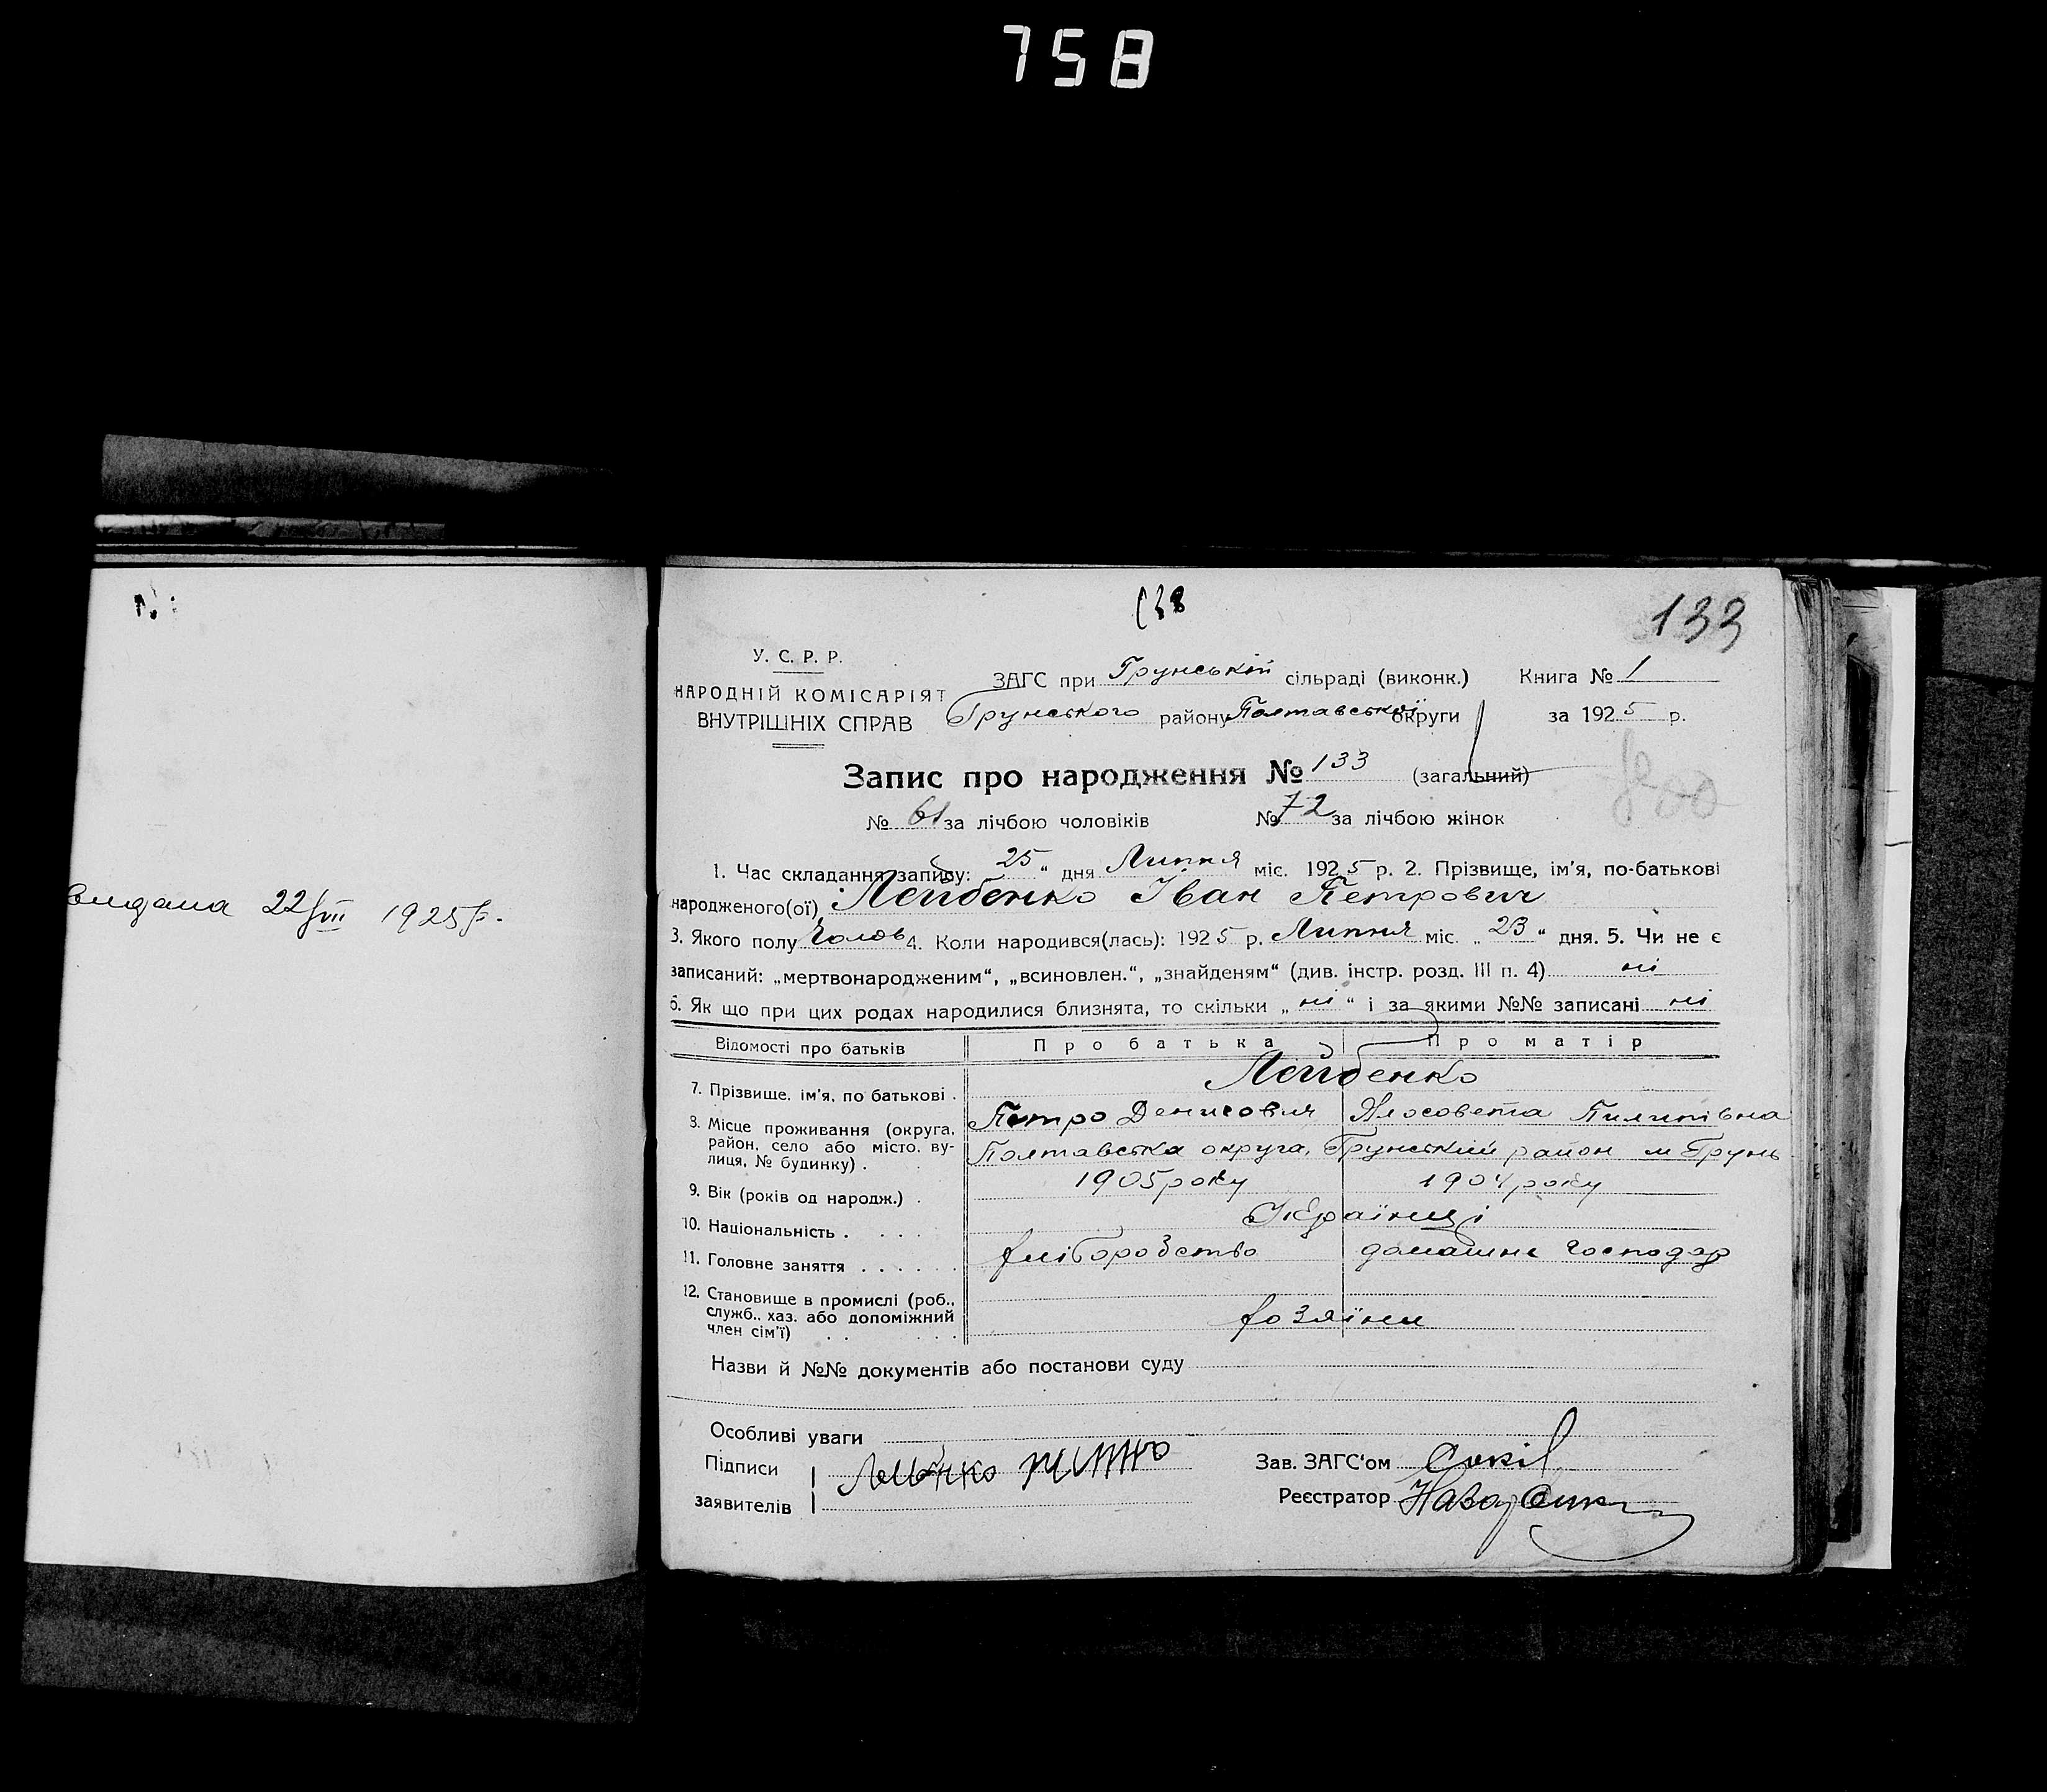 758
133
У. С. Р. Р.
НАРОДНІЙ КОМІСАРІЯТ
ВНУТРІШНІХ СПРАВ
ЗАГС при Грунській сільраді (виконк.) Книга № 1
Грунського району Полтавської округи за 1925 р.
Запис про народження № 133 (загальний)
№ 61 за лічбою чоловіків № 72 за лічбою жінок
1. Час складання запису: 25 “ дня Липня міс. 1925 р. 2. Прізвище, ім’я, по-батькові
народженого(ої) Лейбенко Іван Петрович
3. Якого полу Чолов 4. Коли народився(лась): 1925 р. Липня міс. „ 23 “ дня. 5. Чи не є
записаний: „мертвонародженим“, „всиновлен.“, „знайденям“ (див. інстр. розд. III п. 4) ні
6. Як що при цих родах народилися близнята, то скільки „ ні “ і за якими №№ записані ні
Відомості про батьків Про батька Про матір
Лейбенко
7. Прізвище, ім’я, по батькові . Петро Денисович Ялосовета Пилипівна
8. Місце проживання (округа, район, село або місто, ву-
лиця, № будинку) . Полтавська округа, Грунський район м Грунь
9. Вік (років од народж.) . 1905 року 1904 року
10. Національність . . . . Українці
11. Головне заняття . . . . . . хліборобство домашнє господар
12. Становище в промислі (роб., служб., хаз. або допоміжний
член сім’ї) . . . . . хозяїни
Назви й №№ документів або постанови суду
Особливі уваги
Підписи
заявителів
Зав. ЗАГС‘ом Сокіл
Реєстратор
видана 22/VII 1925 р.